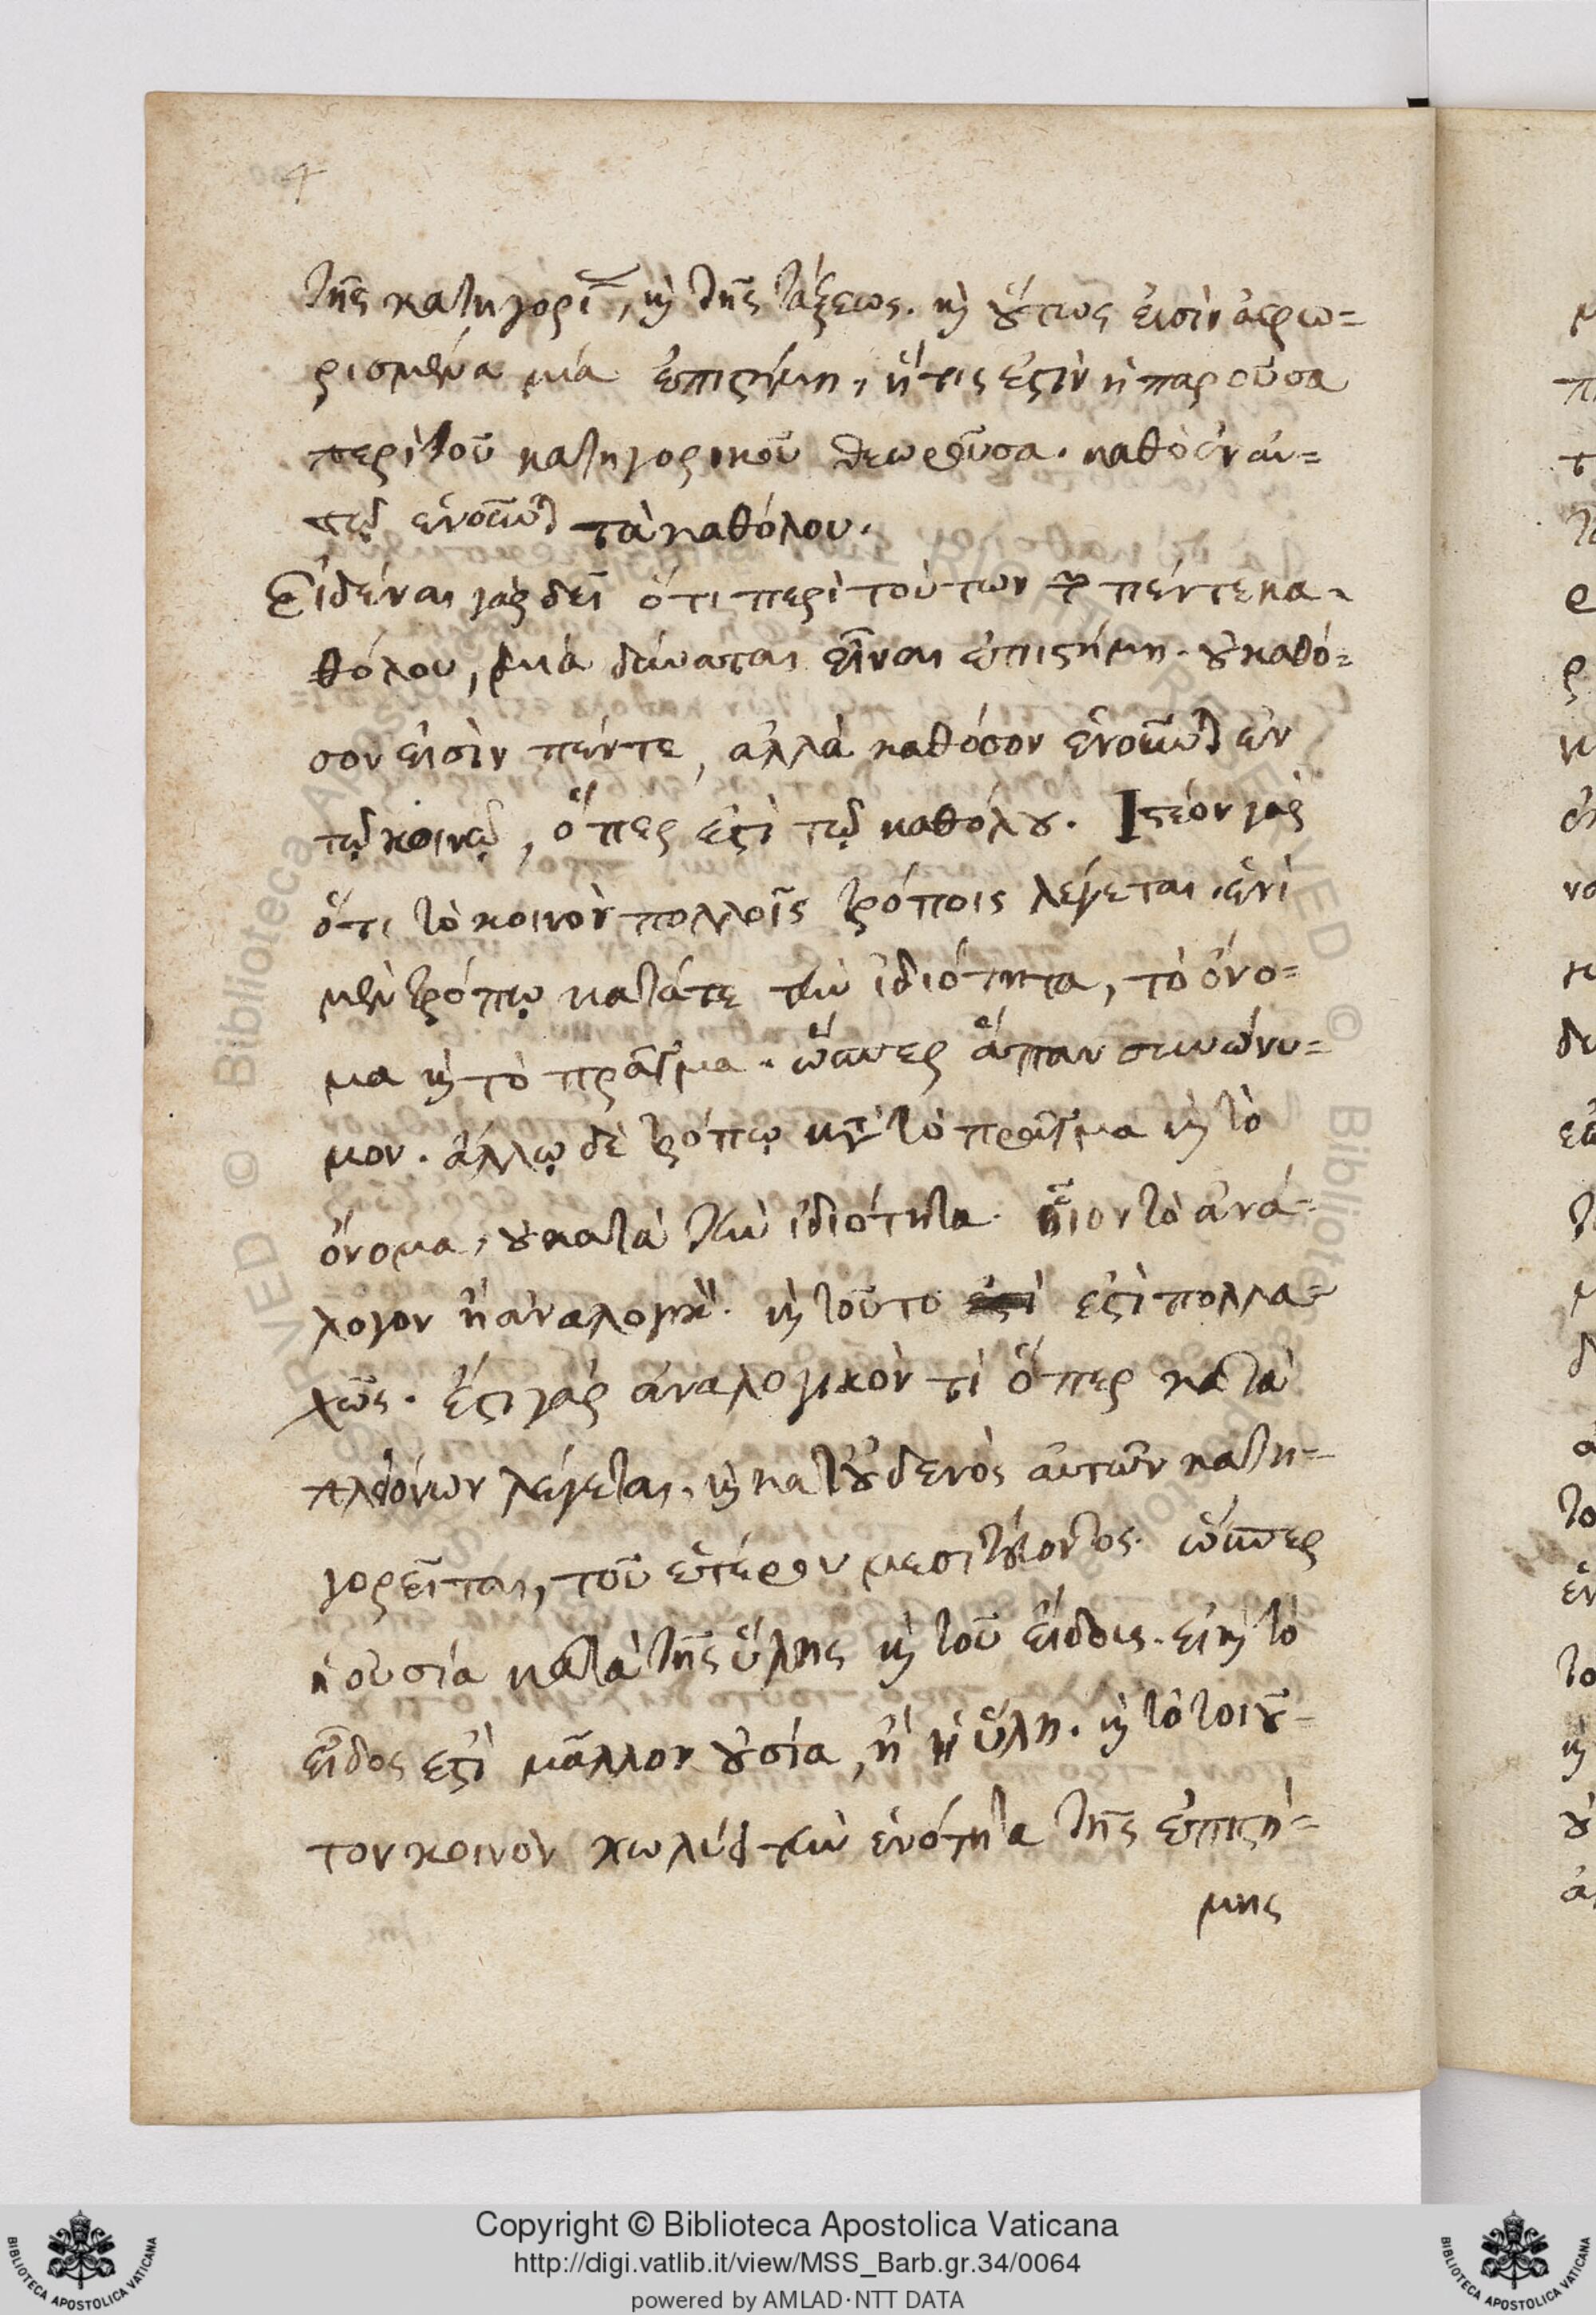 4
τῆς κατηγορί, καὶ τῆς τάξεως. καὶ οὕτως εἰσὶν ἀφω=
ρισμένα μία ἐπιστήμη, ἥτις ἐστὶν ἡ παροῦσα
περὶ τοῦ κατηγορικοῦ θεωροῦσα. καθὸ ἐν αυ=
τῷ ἑνοῦνται τὰ καθόλου.
Εἰδέναι γὰρ δεῖ ὅτι περὶ τούτων τῶν πέντε κα=
θόλου, μιὰ δύναται εἶναι ἐπιστήμη. οὐ καθό=
σον εἰσὶν πέντε, ἀλλὰ καθόσον ἑνοῦνται ἐν
τῷ κοινῷ, ὅπερ ἐστὶ τῷ καθόλου. Ἰστέον γὰρ
ὅτι τὸ κοινὸν πολλοῖς τρόποις λέγεται. ἑνὶ
μὲν τρόπῳ κατάτε τὴν ἰδιότητα, τὸ ὄνο=
μα καὶ τὸ πρᾶγμα. ὥσπερ ἅπαν συνώνυ=
μον. ἄλλῳ δὲ τρόπῳ κατὰ τὸ πρᾶγμα καὶ τὸ
ὄνομα, οὐ κατὰ τὴν ἰδιότητα. τὸ ἀνά=
λογον ἢ ἀναλογικὸν. καὶ τοῦτο ἐστὶ πολλα=
χῶς. ἔστι γὰρ ἀναλογικὸν τὶ ὅπερ κατὰ
πλειόνων λέγεται, καὶ κατ' οὐδενὸς αὐτῶν κατη=
γορεῖται, τοῦ ἑτέρου μεσιτεύοντος. ὥσπερ
ἡ οὐσία κατὰ τῆς ὕλης καὶ τοῦ εἴδους. εἰ καὶ τὸ
εἶδος ἐστὶ μᾶλλον οὐσία, ἢ ἡ ὕλη. καὶ τὸ τοιοῦ=
τον κοινὸν κωλύει τὴν ἑνότητα τῆς ἐπιστή=
μης
Copyright © Biblioteca Apostolica Vaticana
http://digi.vatlib.it/view/MSS_Barb.gr.34/0064
powered by AMLAD·NTT DATA